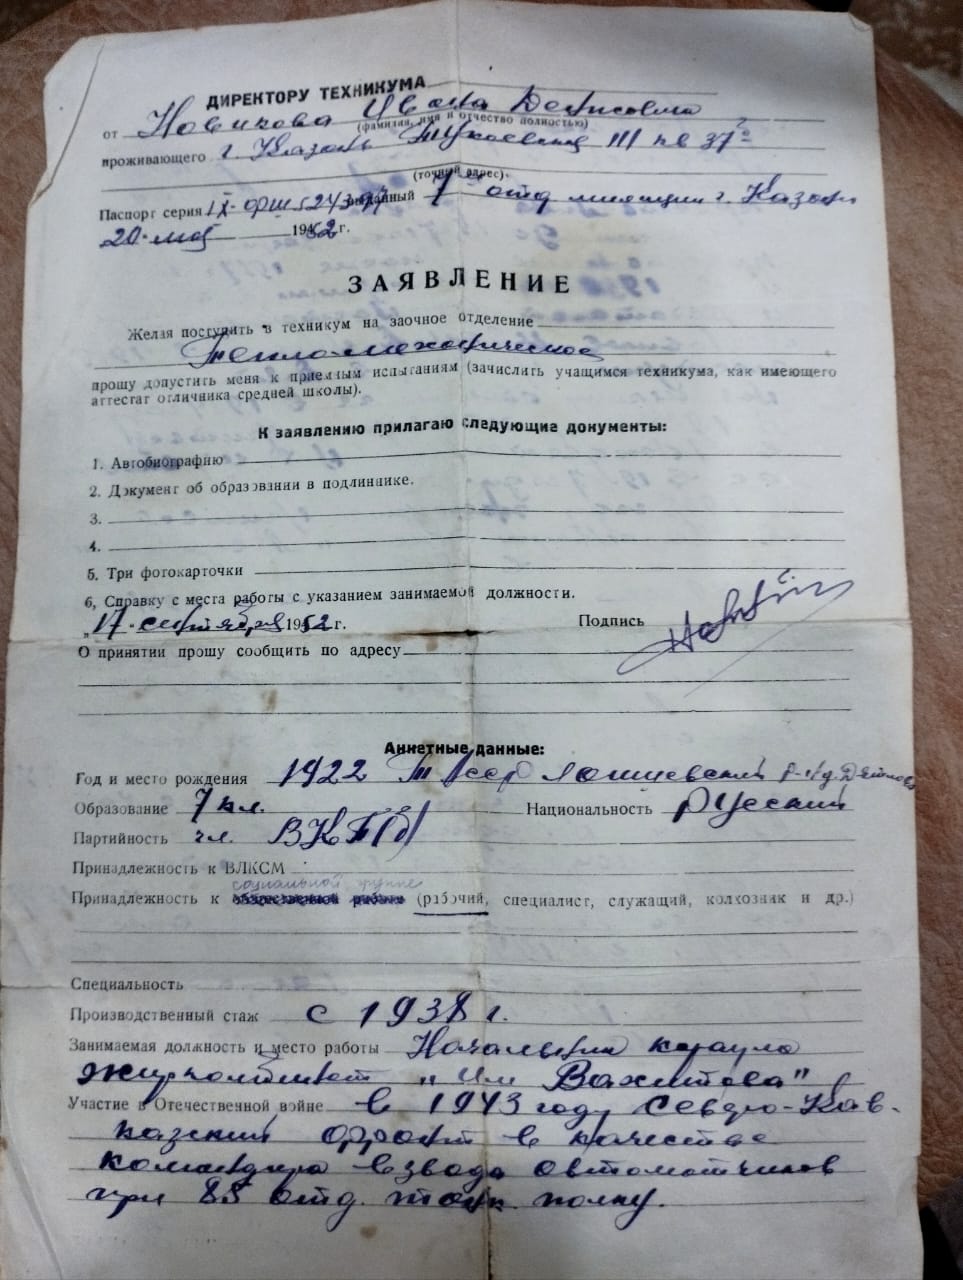 ДИРЕКТОРУ ТЕХНИКУМА
от Новикова Ивана Денисовича
(фамилия, имя и отчество полностью)
проживающего г. Казань Тукаевская III кв 37а
(точный адрес).
Паспорт серия IX- выданный 7 отд милиции г. Казани
20 мая 1952 г.
ЗАЯВЛЕНИЕ
Желая поступить в техникум на заочное отделение
Тепло-механическое
прошу допустить меня к приемным испытаниям (зачислить учащимся техникума, как имеющего
аттестат отличника средней школы).
К заявлению прилагаю следующие документы:
1. Автобиографию
2. Документ об образовании в подлиннике.
3.
4.
5. Три фотокарточки
6, Справку с места работы с указанием занимаемой должности.
„17 сентября 1952 г. Подпись
О принятии прошу сообщить по адресу
Анкетные данные:
Год и место рождения 1922 Т АССР Лаишевский р-н
Образование 7 кл. Национальность Русский
Партийность чл. ВКП(б)
Принадлежность к ВЛКСМ
социальной группе
Принадлежность к (рабочий, специалист, служащий, колхозник и др.)
Специальность
Производственный стаж с 1938 г.
Занимаемая должность и место работы Начальник караула
Жиркомбинат „Им Вахитова"
Участие в Отечественной войне в 1943 году Северо-Кав-
казский фронт в качестве
командира взвода автоматчиков
при 85 отд. танк полку.